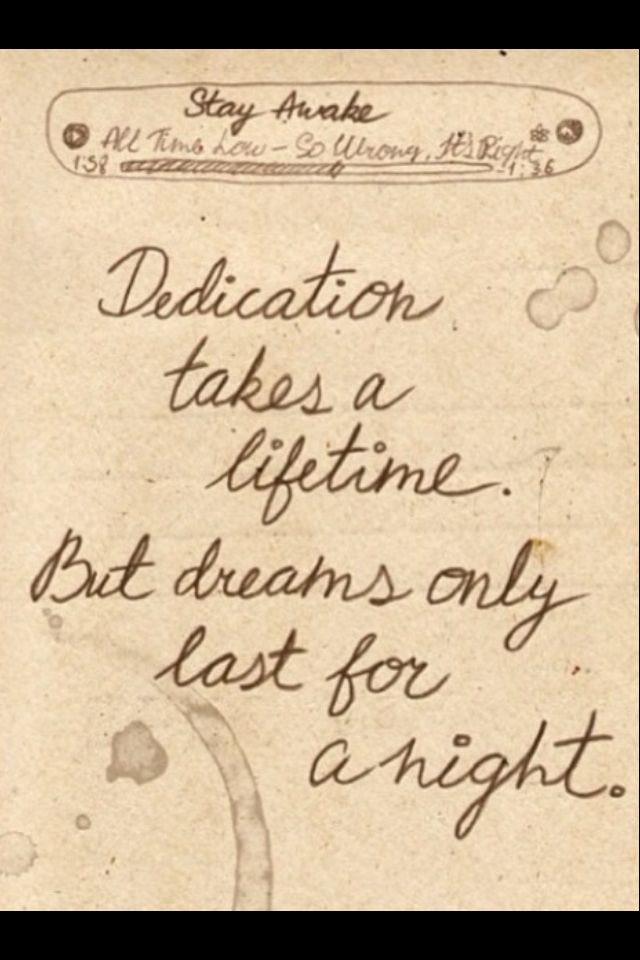 Stay Awake
All Time Low - So Wrong, It's Right
1:58 -1:36
Dedication
takes a
lifetime.
But dreams only
last for
a night.